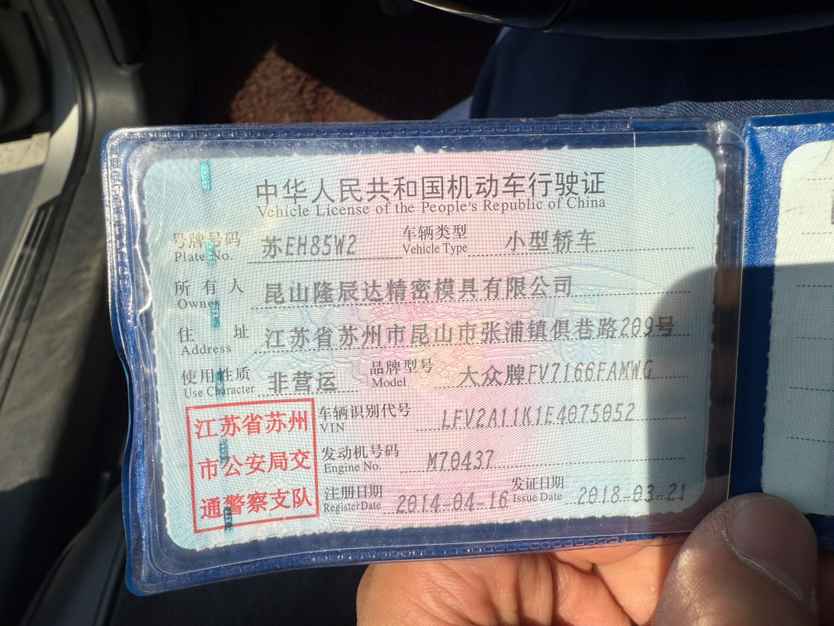 中华人民共和国机动车行驶证
Vehicle License of the People's Republic of China
号牌号码 Plate No. 苏EH85W2 车辆类型 Vehicle Type 小型轿车
所有人 Owner 昆山隆辰达精密模具有限公司
住址 Address 江苏省苏州市昆山市张浦镇俱巷路209号
使用性质 Use Character 非营运 品牌型号 Model 大众牌FV7166FAMWG
车辆识别代号 VIN LFV2A11K1E4075052
发动机号码 Engine No. M70437
注册日期 Register Date 2014-04-16 发证日期 Issue Date 2018-03-21
江苏省苏州
市公安局交
通警察支队